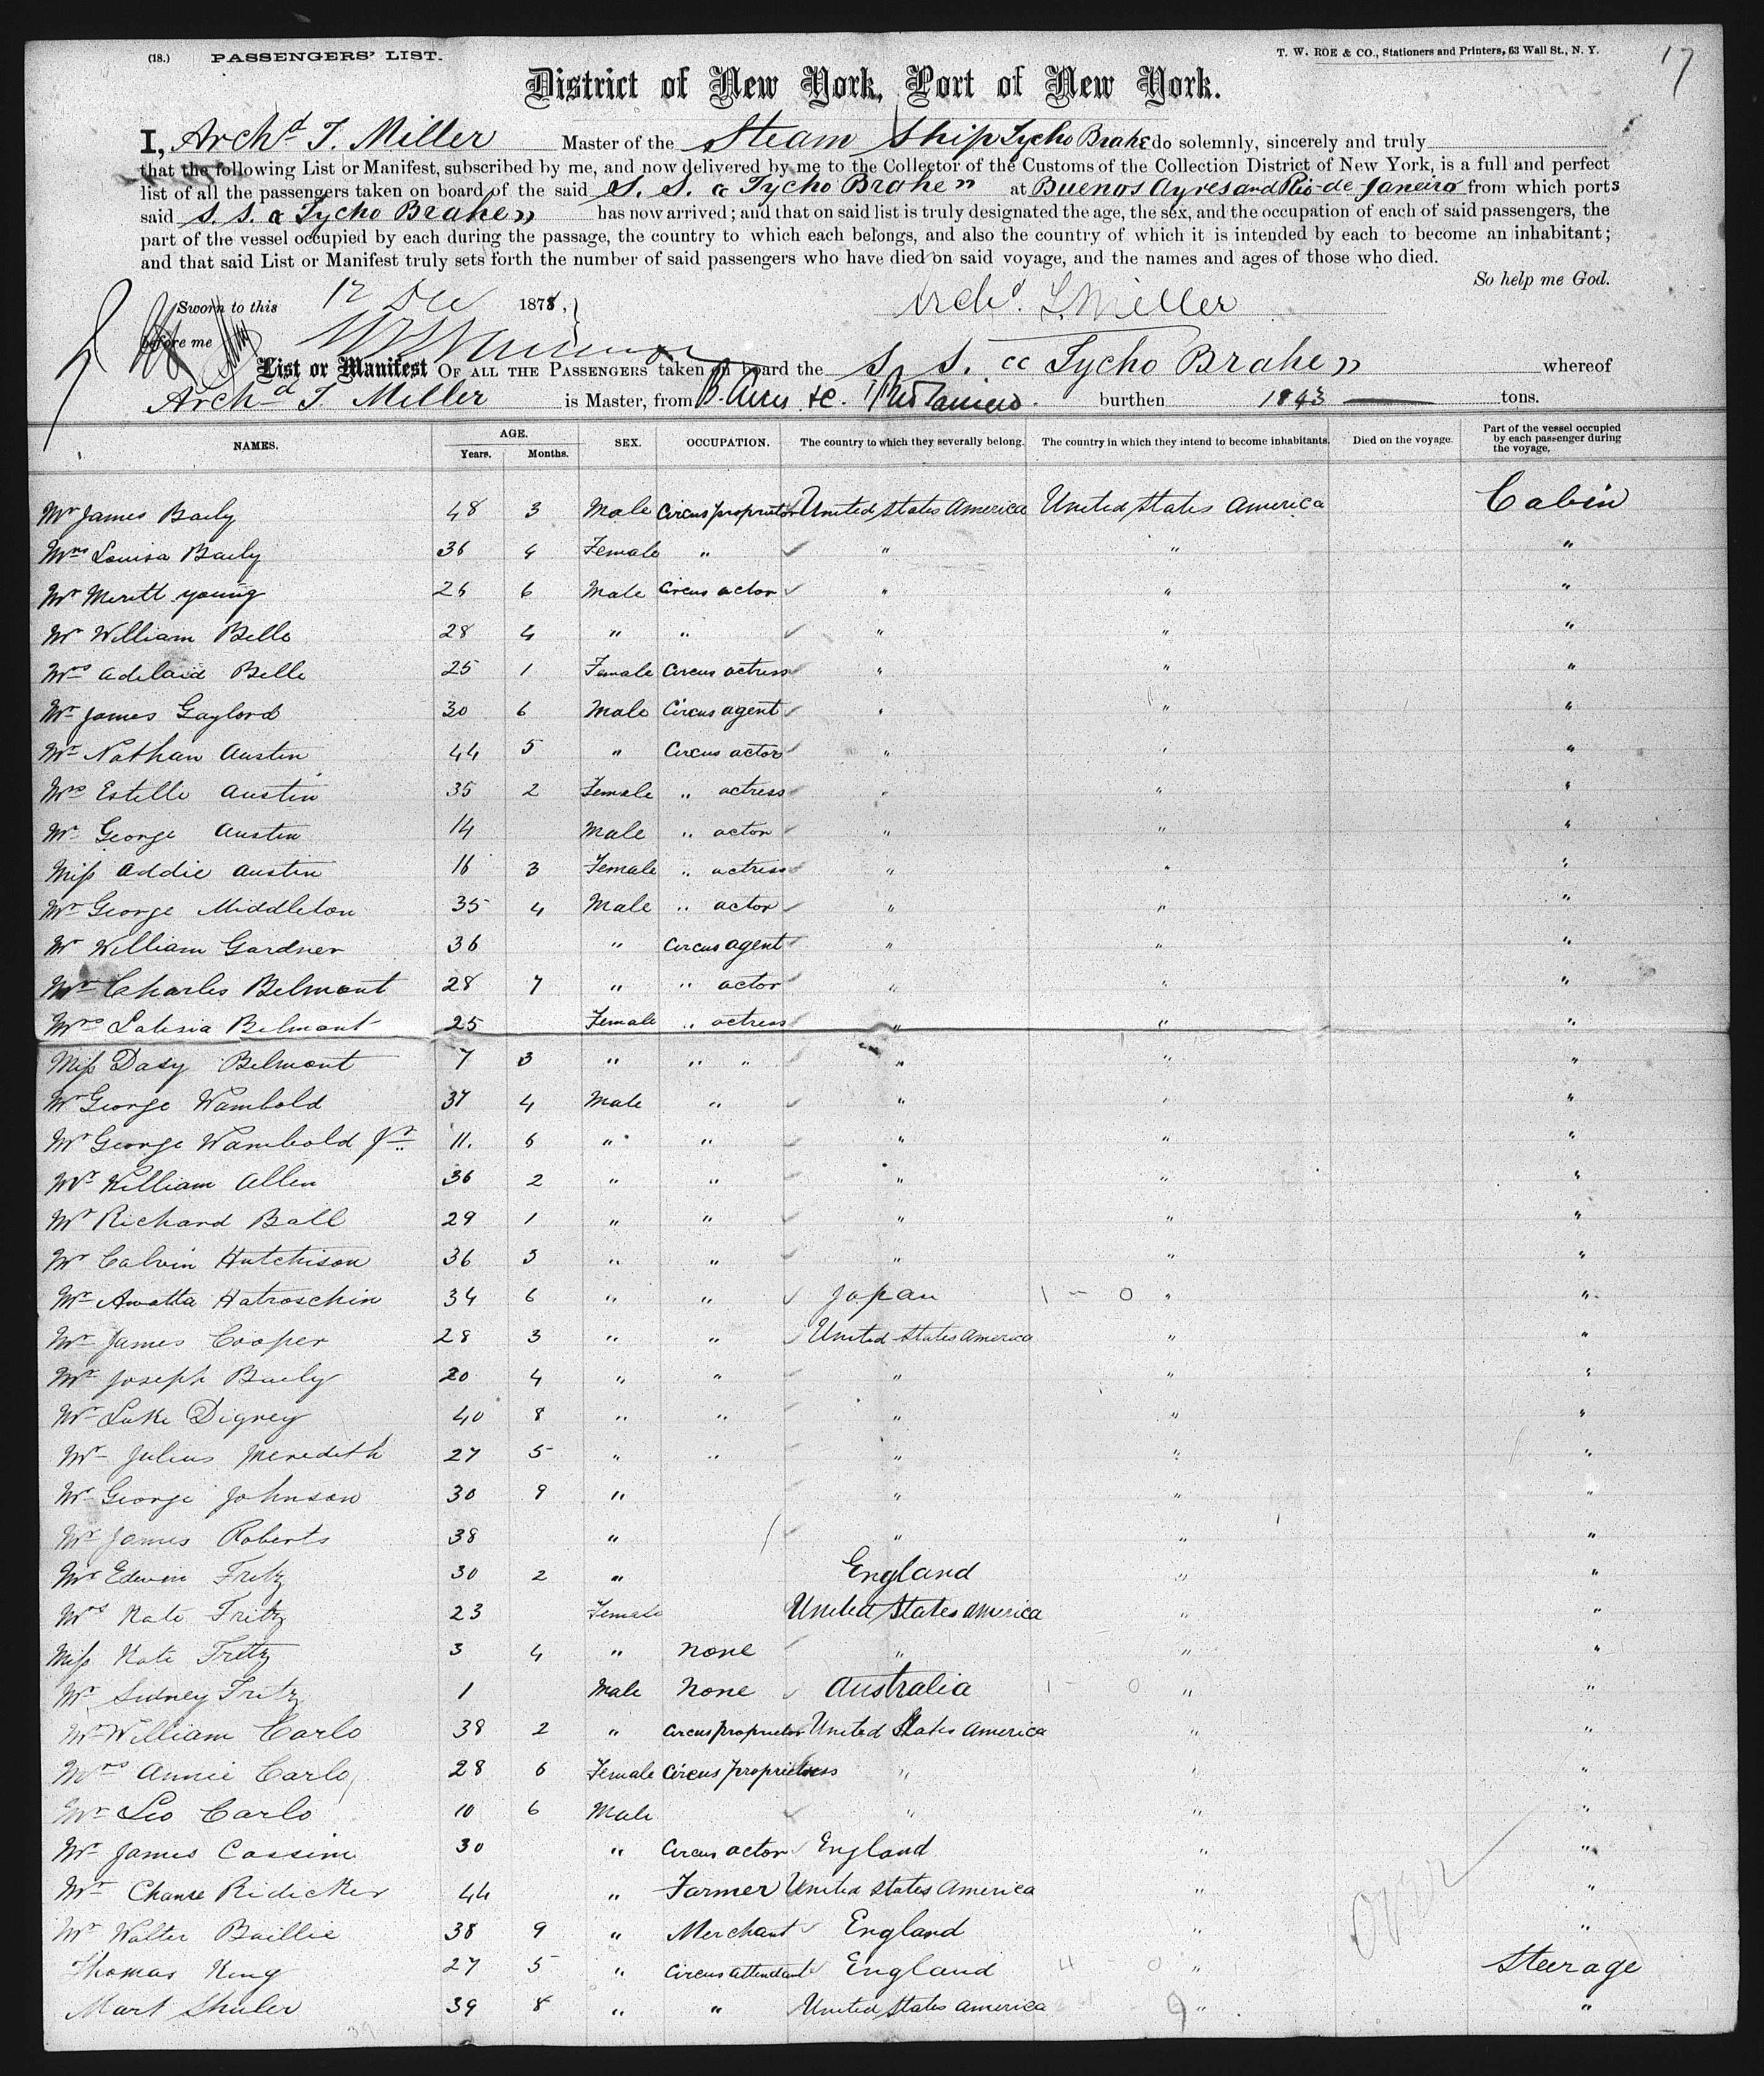 (18.) PASSENGERS' LIST. T. W. ROE & CO., Stationers and Printers, 63 Wall St., N. Y. 17
District of New York, Port of New York.
I, Archd T. Miller Master of the Steam Ship Tycho Brahe do solemnly, sincerely and truly
that the following List or Manifest, subscribed by me, and now delivered by me to the Collector of the Customs of the Collection District of New York, is a full and perfect
list of all the passengers taken on board of the said S. S. "Tycho Brahe" at Buenos Ayres and Rio de Janeiro from which ports
said S. S. "Tycho Brahe" has now arrived; and that on said list is truly designated the age, the sex, and the occupation of each of said passengers, the
part of the vessel occupied by each during the passage, the country to which each belongs, and also the country of which it is intended by each to become an inhabitant;
and that said List or Manifest truly sets forth the number of said passengers who have died on said voyage, and the names and ages of those who died.
So help me God.
Sworn to this 12 Dec 1878, Archd. T. Miller
before me
List or Manifest OF ALL THE PASSENGERS taken on board the S. S. "Tycho Brahe" whereof
Archd T Miller is Master, from B. Aires &c. Rio Janeiro burthen 1843 tons.
NAMES. AGE. Years. Months. SEX. OCCUPATION. The country to which they severally belong. The country in which they intend to become inhabitants. Died on the voyage. Part of the vessel occupied by each passenger during the voyage.
Mr James Baily 48 3 Male Circus proprietor United States America United States America Cabin
Mrs Louisa Baily 36 4 Female " " " "
Mr Meritt young 26 6 Male Circus actor " " "
Mr William Belle 28 4 " " " " "
Mrs Adelaid Belle 25 1 Female Circus actress " " "
Mr James Gaylord 30 6 Male Circus agent " " "
Mr Nathan Austin 44 5 " Circus actor " " "
Mrs Estelle Austin 35 2 Female " actress " " "
Mr George Austin 14 Male " actor " " "
Miss Addie Austin 16 3 Female " actress " " "
Mr George Middleton 35 4 Male " actor " " "
Mr William Gardner 36 " Circus agent " " "
Mr Charles Belmont 28 7 " " actor " " "
Mrs Latisia Belmont 25 Female " actress " " "
Miss Dasy Belmont 7 3 " " " " " "
Mr George Wambold 37 4 Male " " " "
Mr George Wambold Jr. 11. 6 " " " " "
Mr William Allen 36 2 " " " " "
Mr Richard Ball 29 1 " " " " "
Mr Calvin Hutchison 36 3 " " " " "
Mr Awatta Hatroschin 34 6 " " Japan 1 - 0 " "
Mr James Cooper 28 3 " " United States America " "
Mr Joseph Baily 20 4 " " " " "
Mr Luke Digney 40 8 " " " " "
Mr Julius Meredith 27 5 " " " " "
Mr George Johnson 30 9 " " " "
Mr James Roberts 38 " " " "
Mr Edwin Fritz 30 2 " England " "
Mrs Kate Fritz 23 Female United States America " "
Miss Kate Fritz 3 4 " None " " "
Mr Sidney Fritz 1 Male None Australia 1 - 0 " "
Mr William Carlo 38 2 " Circus proprietor United States America " "
Mrs Annie Carlo 28 6 Female Circus proprietress " " "
Mr Leo Carlo 10 6 Male " " "
Mr James Cassim 30 " Circus actor England " "
Mr Ridicker 44 " Farmer United States America " "
Mr Walter Baillie 38 9 " Merchant England " over "
Thomas King 27 5 " Circus attendant England 4 - 0 " Steerage
Mart Shuler 39 8 " " United States America 9 " "
39